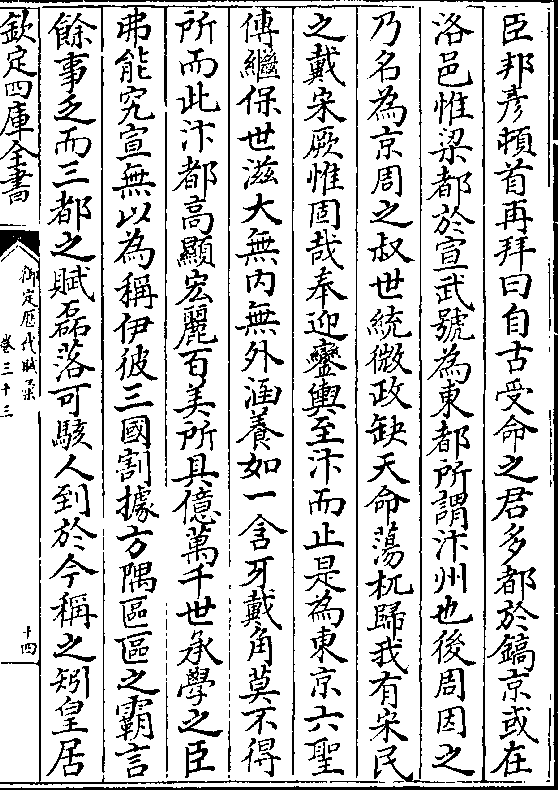 臣邦彦頓首再拜曰自古受命之君多都於鎬京或在
洛邑惟梁都於宣武號為東都所謂汴州也後周因之
乃名為京周之叔世統微政缺天命蕩杌歸我有宋民
之戴宋厥惟固哉奉迎鑾輿至汴而止是為東京六聖
傳繼保世滋大無内無外涵養如一含牙戴角莫不得
所而此汴都高顯宏麗百美所具億萬千世承學之臣
弗能究宣無以為稱伊彼三國割據方隅區區之霸言
餘事乏而三都之賦磊落可駭人到於今稱之矧皇居
欽定四庫全書
御定歴代賦彚
卷三十三
十四